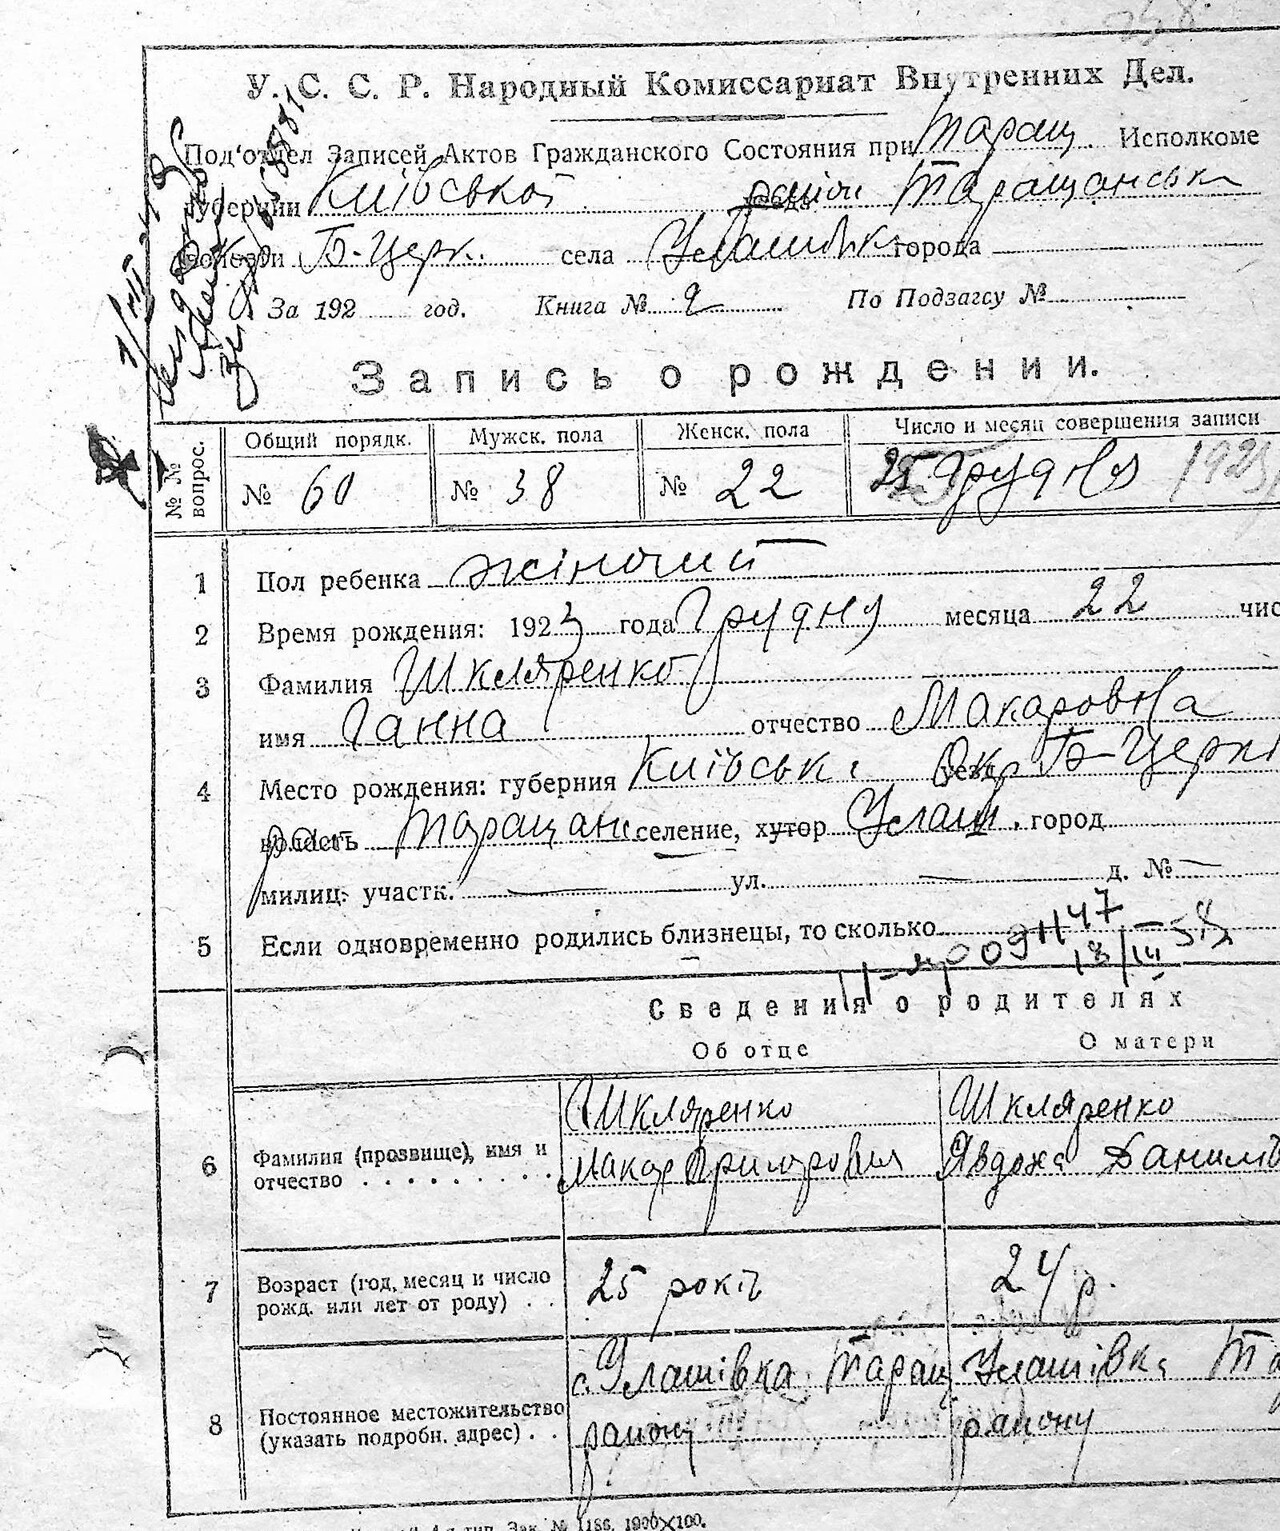 У. С. С. Р. Народный Комиссариат Внутренних Дел.
Под'отдел Записей Актов Гражданского Состояния при Таращ. Исполкоме
губернии Київської район Таращанськ
волости Б-Церк. села Улашівк города
За 192 год. Книга № 2 По Подзагсу №
Запись о рождении.
№ № вопрос. Общий порядк. Мужск. пола Женск. пола Число и месяц совершения записи
№ 60 № 38 № 22 25 грудня 1923
1 Пол ребенка жіночий
2 Время рождения: 1923 года Грудня месяца 22 чис
3 Фамилия Шкляренко
имя Ганна отчество Макаровна
4 Место рождения: губерния Київськ уезд Окр Б-Церкі
волость Таращанс селение, хутор Улаш. город
милиц. участк. — ул. — д. № —
5 Если одновременно родились близнецы, то сколько
18/III—58
Сведения о родителях
Об отце О матери
Шкляренко Шкляренко
6 Фамилия (прозвище), имя и
отчество Макар Григорович Явдоха Данилів
7 Возраст (год, месяц и число
рожд. или лет от роду) 25 років 24 р.
с. Улашівка Таращ Улашівка Та
8 Постоянное местожительство
(указать подробн. адрес) району району
тип. Зак. № 1186. 1900×100.